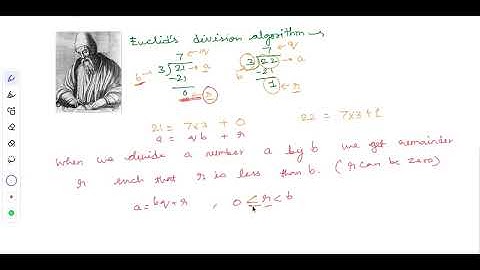 Euclid's division algorithm
7 ← q
b → 3 ) 21 → a
-21
0 ← r
7 ← q
b 3 ) 22 → a
-21
1 ← r
21 = 7×3 + 0
a = q b + r
22 = 7×3+1
When we divide a number a by b we get remainder
r such that r is less than b. (r can be zero)
a = bq+r , 0 ≤ r < b